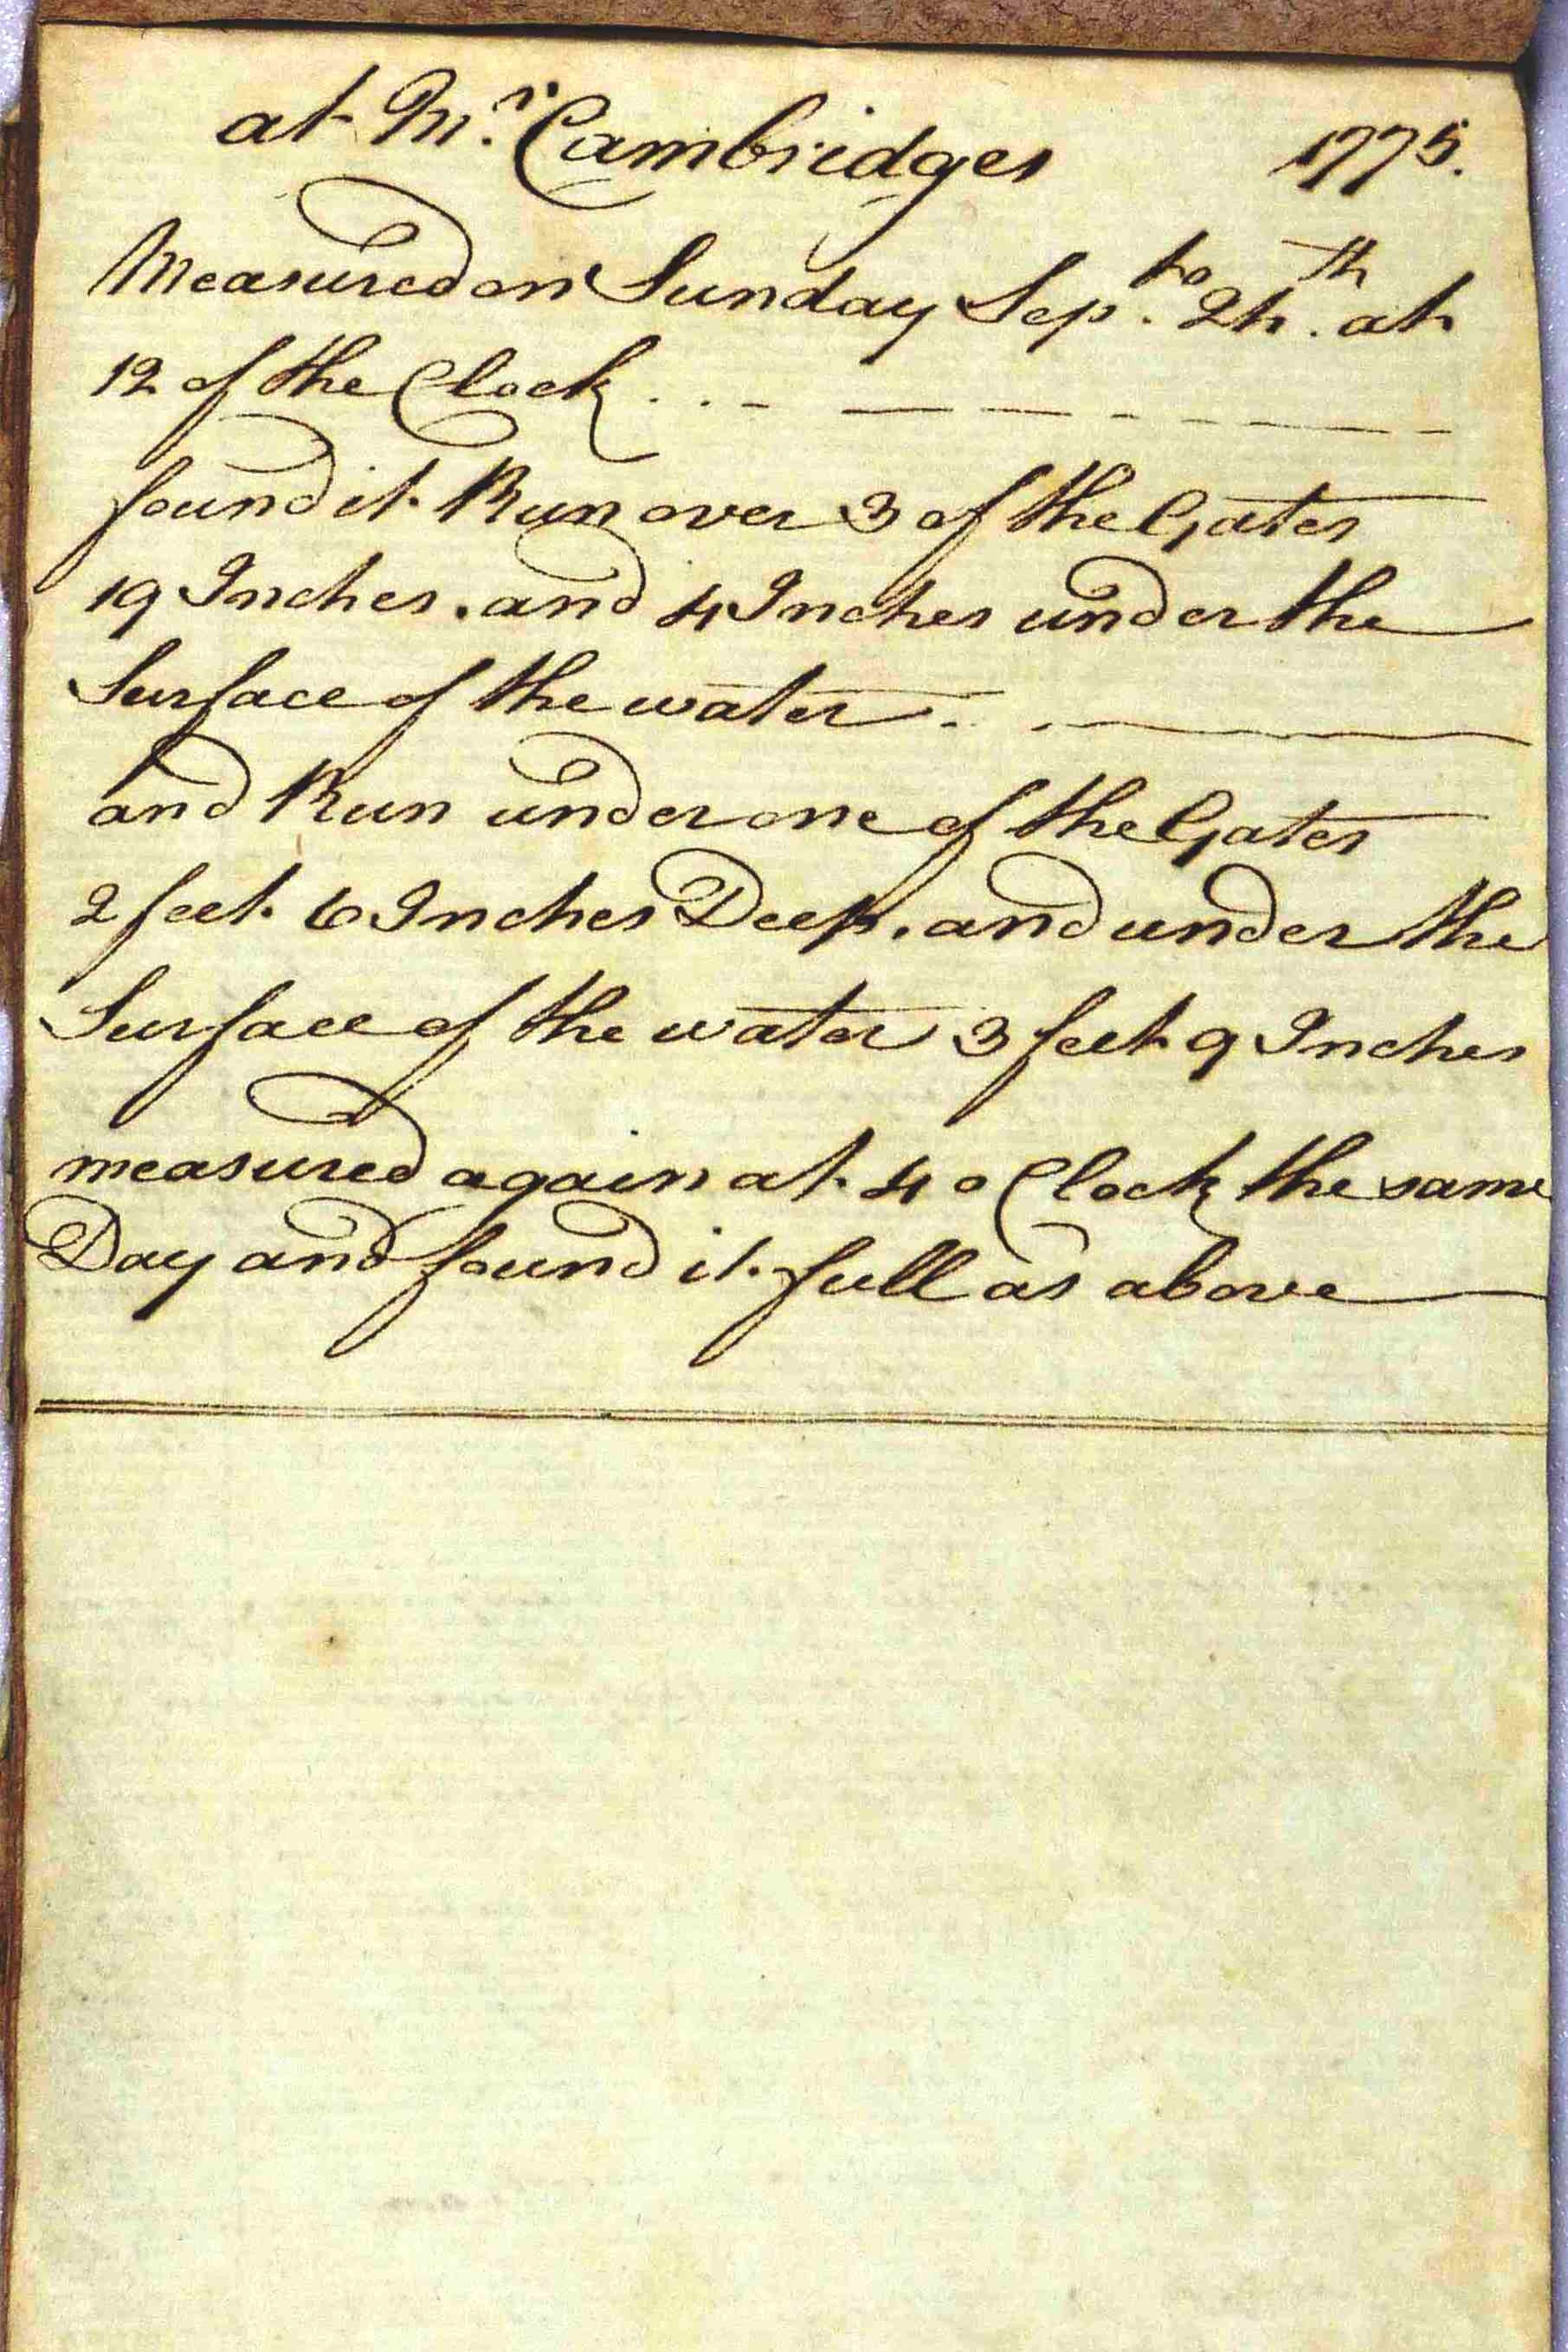 at Mr. Cambridges 1775.
Measured on Sunday Sepbr. 24th. at
12 of the Clock . . . - — — — - - — -
found it Run over 3 of the Gates
19 Inches. and 4 Inches under the
Surface of the water - . —
and Run under one of the Gates
2 feet 6 Inches Deep. and under the
Surface of the water 3 feet 9 Inches
measured again at 4 o Clock the same
Day and found it full as above —